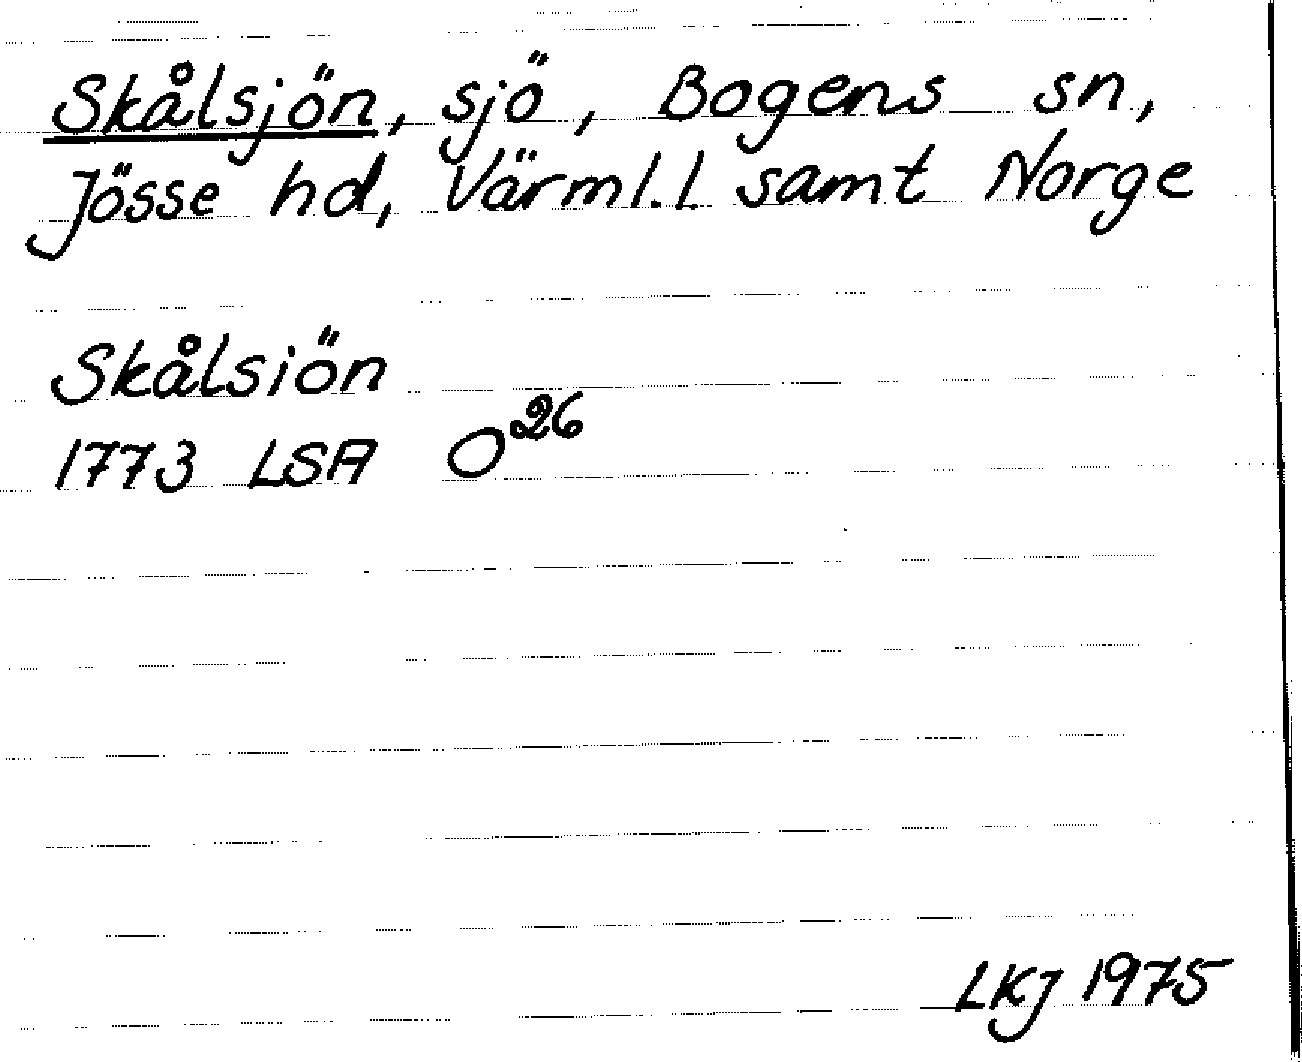 Skålsjön, sjö, Bogens sn,
Jösse hd, Värml.l samt Norge
Skålsiön
1773 LSA O26
LKJ 1975